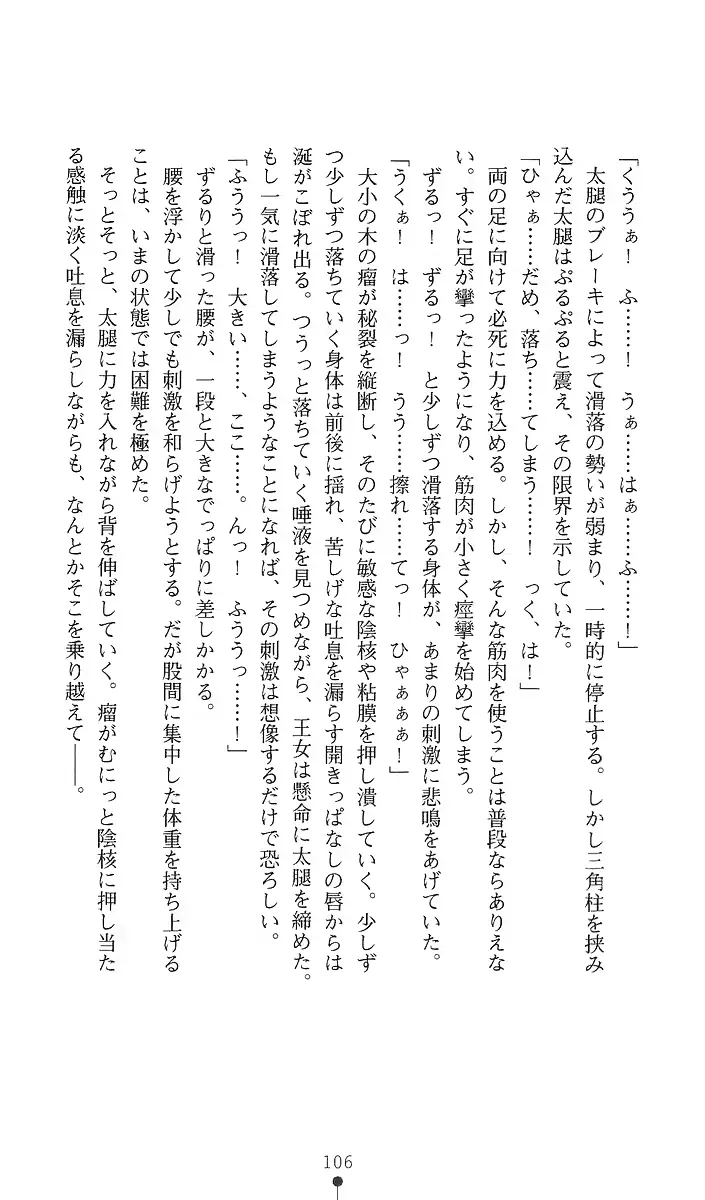 「くううぁ！　ふ……！　うぁ……はぁ……ふ……！」
　太腿のブレーキによって滑落の勢いが弱まり、一時的に停止する。しかし三角柱を挟み
込んだ太腿はぷるぷると震え、その限界を示していた。
「ひゃぁ……だめ、落ち……てしまう……！　っく、は！」
　両の足に向けて必死に力を込める。しかし、そんな筋肉を使うことは普段ならありえな
い。すぐに足が攣ったようになり、筋肉が小さく痙攣を始めてしまう。
　ずるっ！　ずるっ！　と少しずつ滑落する身体が、あまりの刺激に悲鳴をあげていた。
「うくぁ！　は……っ！　うう……擦れ……てっ！　ひゃぁぁぁ！」
　大小の木の瘤が秘裂を縦断し、そのたびに敏感な陰核や粘膜を押し潰していく。少しず
つ少しずつ落ちていく身体は前後に揺れ、苦しげな吐息を漏らす開きっぱなしの唇からは
涎がこぼれ出る。つうっと落ちていく唾液を見つめながら、王女は懸命に太腿を締めた。
もし一気に滑落してしまうようなことになれば、その刺激は想像するだけで恐ろしい。
「ふううっ！　大きい……、ここ……。んっ！　ふううっ……！」
　ずるりと滑った腰が、一段と大きなでっぱりに差しかかる。
　腰を浮かして少しでも刺激を和らげようとする。だが股間に集中した体重を持ち上げる
ことは、いまの状態では困難を極めた。
　そっとそっと、太腿に力を入れながら背を伸ばしていく。瘤がむにっと陰核に押し当た
る感触に淡く吐息を漏らしながらも、なんとかそこを乗り越えて――。
106